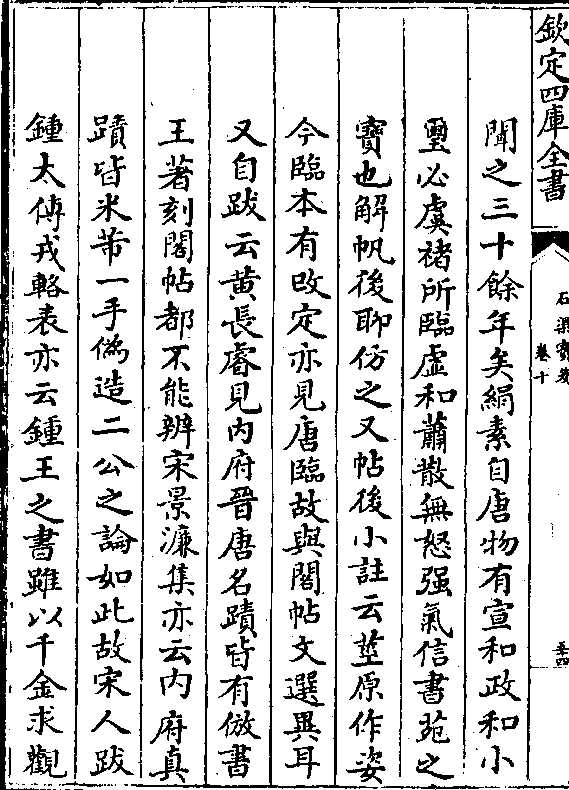 欽定四庫全書
石渠寶笈
卷十
聞之三十餘年矣絹素自唐物有宣和政和小
璽必虞褚所臨虛和蕭散無怒强氣信書苑之
寶也解帆後聊仿之又帖後小註云莖原作姿
今臨本有改定亦見唐臨故與閣帖文選異耳
又自跋云黄長睿見内府晉唐名蹟皆有倣書
王著刻閣帖都不能辨宋景濂集亦云内府真
蹟皆米芾一手偽造二公之論如此故宋人跋
鍾太傅戎輅表亦云鍾王之書雖以千金求觀